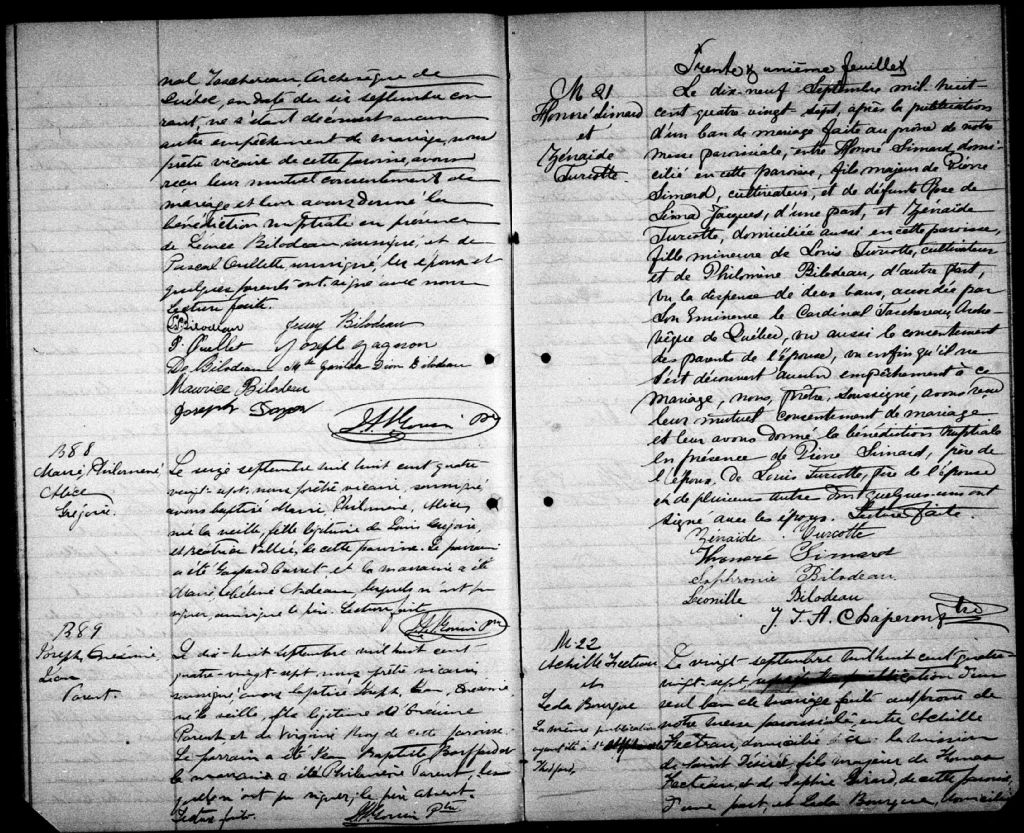 nal Taschereau, Archevêque de
Québec, en date du six septembre cou
rant, ne s'étant découvert aucun
autre empêchement de mariage, nous
prêtre vicaire de cette paroisse, avons
reçu leur mutuel consentement de
mariage et leur avons donné la
bénédiction nuptiale en présence
de Bilodeau soussigné, et de
Pascal Ouellette soussigné, les époux et
quelques parents ont signé avec nous
Lecture faite.
Bilodeau
Bilodeau
P. Ouellet
Joseph Gagnon
Bilodeau
Dion Bilodeau
Maurice Bilodeau
Joseph
B 88
Marie, Philomène
Alice
Grégoire.
Le seize septembre mil huit cent quatre
vingt-sept, nous prêtre vicaire, soussigné
avons baptisé Marie, Philomène, Alice,
née la veille, fille légitime de Louis Grégoire,
et Béatrice Vallée, de cette paroisse. Le parrain
a été Gaspard et la marraine a été
Marie Nadeau, lesquels n'ont pu
signer, le père. Lecture faite
B 89
Joseph, Onésime,
Léon
Parent.
Le dix-huit septembre mil huit cent
quatre-vingt-sept nous prêtre vicaire
soussigné avons baptisé Joseph, Léon, Onésime
né la veille, fils légitime d'Onésime
Parent et de Virginie Roy de cette paroisse.
Le parrain a été Jean Baptiste
la marraine a été Philomène Parent, les
quels n'ont pu signer, le père absent.
Lecture faite.
Ptre
Trente & unième feuillet
M 21
Honoré Simard
et
Zénaïde
Turcotte
Le dix-neuf Septembre mil huit-
cent quatre vingt-sept, après la publication
d'un ban de mariage faite au prône de notre
messe paroissiale, entre Honoré Simard domi
cilié en cette paroisse, fils majeur de Pierre
Simard, cultivateur, et de défunte Rose de
Lima Jacques, d'une part, et Zénaïde
Turcotte, domiciliée aussi en cette paroisse,
fille mineure de Louis Turcotte, cultivateur
et de Philomine Bilodeau, d'autre part,
vu la dispense de deux bans, accordée par
Son Eminence le Cardinal Taschereau, Arche-
vêque de Québec, vu aussi le consentement
des parents de l'épouse, vu enfin qu'il ne
s'est découvert aucun empêchement à ce
mariage, nous, prêtre, soussigné, avons reçu
leur mutuel consentement de mariage
et leur avons donné la bénédiction nuptiale
en présence de Pierre Simard, père de
l'époux, de Louis Turcotte, père de l'épouse
et de plusieurs autres dont quelques-uns ont
signé avec les époux. Lecture faite.
Zénaïde Turcotte
Honoré Simard
Sophronie Bilodeau
Léonille Bilodeau
J. T. A. Chaperon Ptre
M-22
Achille Fecteau
et
Leda Bourque
La même publication
ayant été à
Thetford,
Le vingt-septembre mil huit cent quatre-
vingt-sept après la publication d'un
seul ban de mariage faite au prône de
notre messe paroissiale, entre Achille
Fecteau, domicilié à la mission
de Saint Désiré, fils majeur de Thomas
Fecteau et de Sophie Giard, de cette paroisse,
d'une part, et Leda Bourque, domiciliée